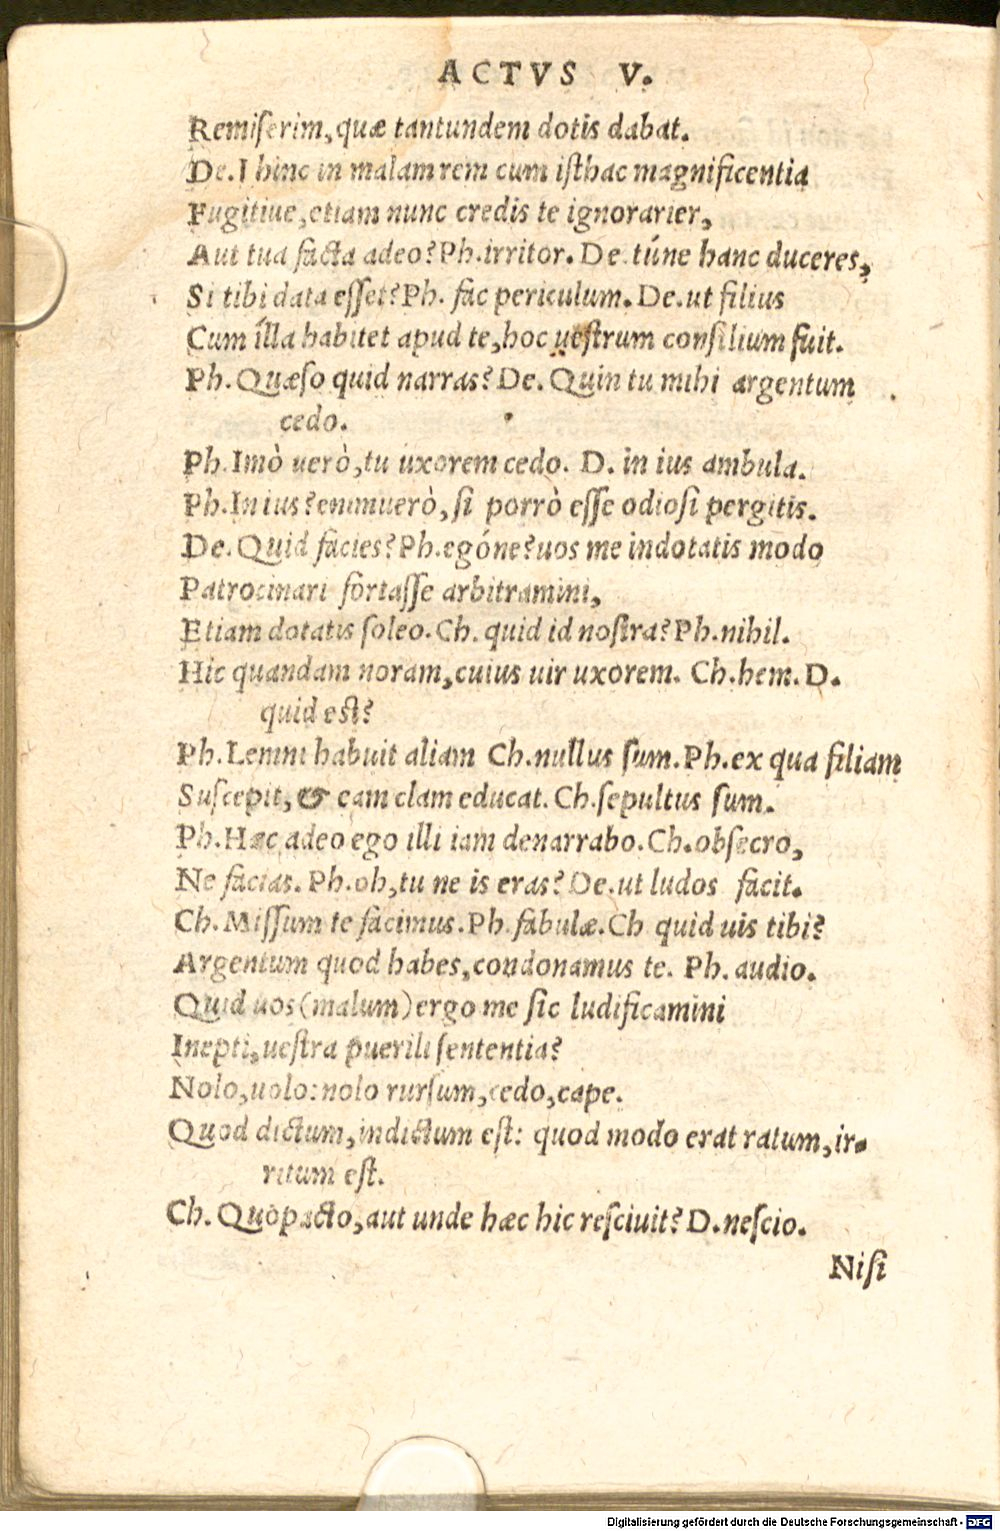 ACTVS V.
Remiſerim, quæ tantundem dotis dabat.
De. I hinc in malam rem cum iſthac magnificentia
Fugitiue, etiam nunc credis te ignorarier,
Aut tua facta adeo? Ph. irritor. De. túne hanc duceres,
Si tibi data eſſet? Ph. fac periculum. De. ut filius
Cum illa habitet apud te, hoc ueſtrum conſilium fuit.
Ph. Quæſo quid narras? De. Quin tu mihi argentum
cedo.
Ph. Imò uerò, tu uxorem cedo. D. in ius ambula.
Ph. In ius? enimuerò, ſi porrò eſſe odioſi pergitis.
De. Quid facies? Ph. egóne? uos me indotatis modo
Patrocinari fortaſſe arbitramini,
Etiam dotatis ſoleo. Ch. quid id noſtra? Ph. nihil.
Hic quandam noram, cuius uir uxorem. Ch. hem. D.
quid eſt?
Ph. Lemni habuit aliam Ch. nullus ſum. Ph. ex qua filiam
Suſcepit, & eam clam educat. Ch. ſepultus ſum.
Ph. Hæc adeo ego illi iam denarrabo. Ch. obſecro,
Ne facias. Ph. oh, tu ne is eras? De. ut ludos facit.
Ch. Miſſum te facimus. Ph. fabulæ. Ch quid uis tibi?
Argentum quod habes, condonamus te. Ph. audio.
Quid uos (malum) ergo me ſic ludificamini
Inepti, ueſtra puerili ſententia?
Nolo, uolo: nolo rurſum, cedo, cape.
Quod dictum, indictum eſt: quod modo erat ratum, ir-
ritum eſt.
Ch. Quo pacto, aut unde hæc hic reſciuit? D. neſcio.
Niſi
Digitalisierung gefördert durch die Deutsche Forschungsgemeinschaft - DFG